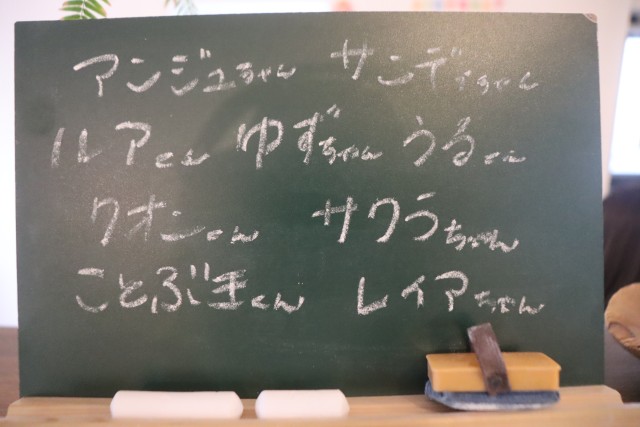 アンジュちゃん サンディちゃん
ルアくん ゆずちゃん うるくん
クオンくん サクラちゃん
ことぶきくん レイアちゃん